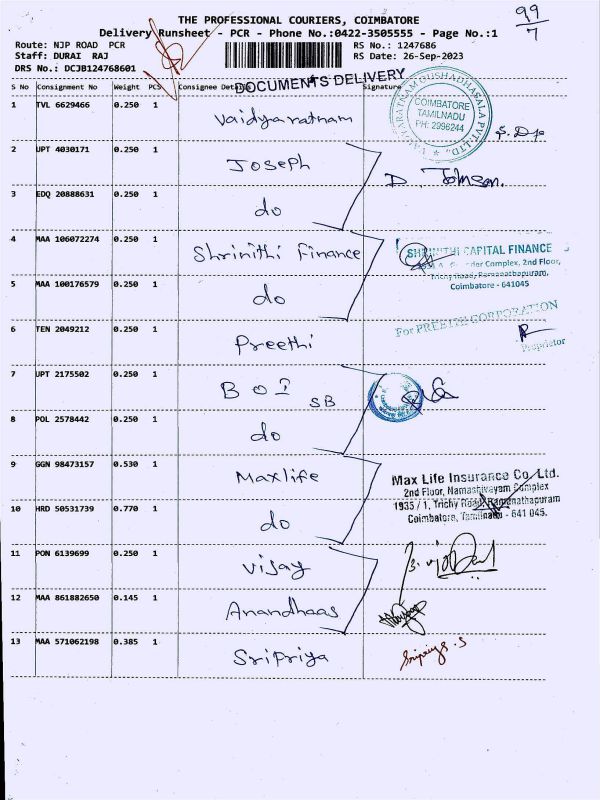 THE PROFESSIONAL COURIERS, COIMBATORE
99/7
Delivery Runsheet - PCR - Phone No.:0422-3505555 - Page No.:1
Route: NJP ROAD PCR
RS No.: 1247686
Staff: DURAI RAJ
RS Date: 26-Sep-2023
DRS No.: DCJB124768601
DOCUMENTS DELIVERY
S No Consignment No Weight PCS Consignee Details Signature
1 TVL 6629466 0.250 1 Vaidyaratnam
VAIDYARATNAM OUSHADHASALA PVT. LTD.
COIMBATORE
TAMILNADU
PH: 2996244
2 UPT 4030171 0.250 1 Joseph D. Johnson.
3 EDQ 20888631 0.250 1 do
4 MAA 106072274 0.250 1 Shrinithi Finance
SHRINITHI CAPITAL FINANCE
Complex, 2nd Floor,
Trichy Road, Ramanathapuram,
Coimbatore - 641045
5 MAA 100176579 0.250 1 do
6 TEN 2049212 0.250 1 Preethi
For PREETHI CORPORATION
Proprietor
7 UPT 2175502 0.250 1 BOI SB
8 POL 2578442 0.250 1 do
9 GGN 98473157 0.530 1 Maxlife
Max Life Insurance Co. Ltd.
2nd Floor, Namashivayam Complex
1935 / 1, Trichy Road, Ramanathapuram
Coimbatore, Tamilnadu - 641 045.
10 HRD 50531739 0.770 1 do
11 PON 6139699 0.250 1 Vijay
12 MAA 861882650 0.145 1 Anandhaas
13 MAA 571062198 0.385 1 Sripriya Sripriya.S